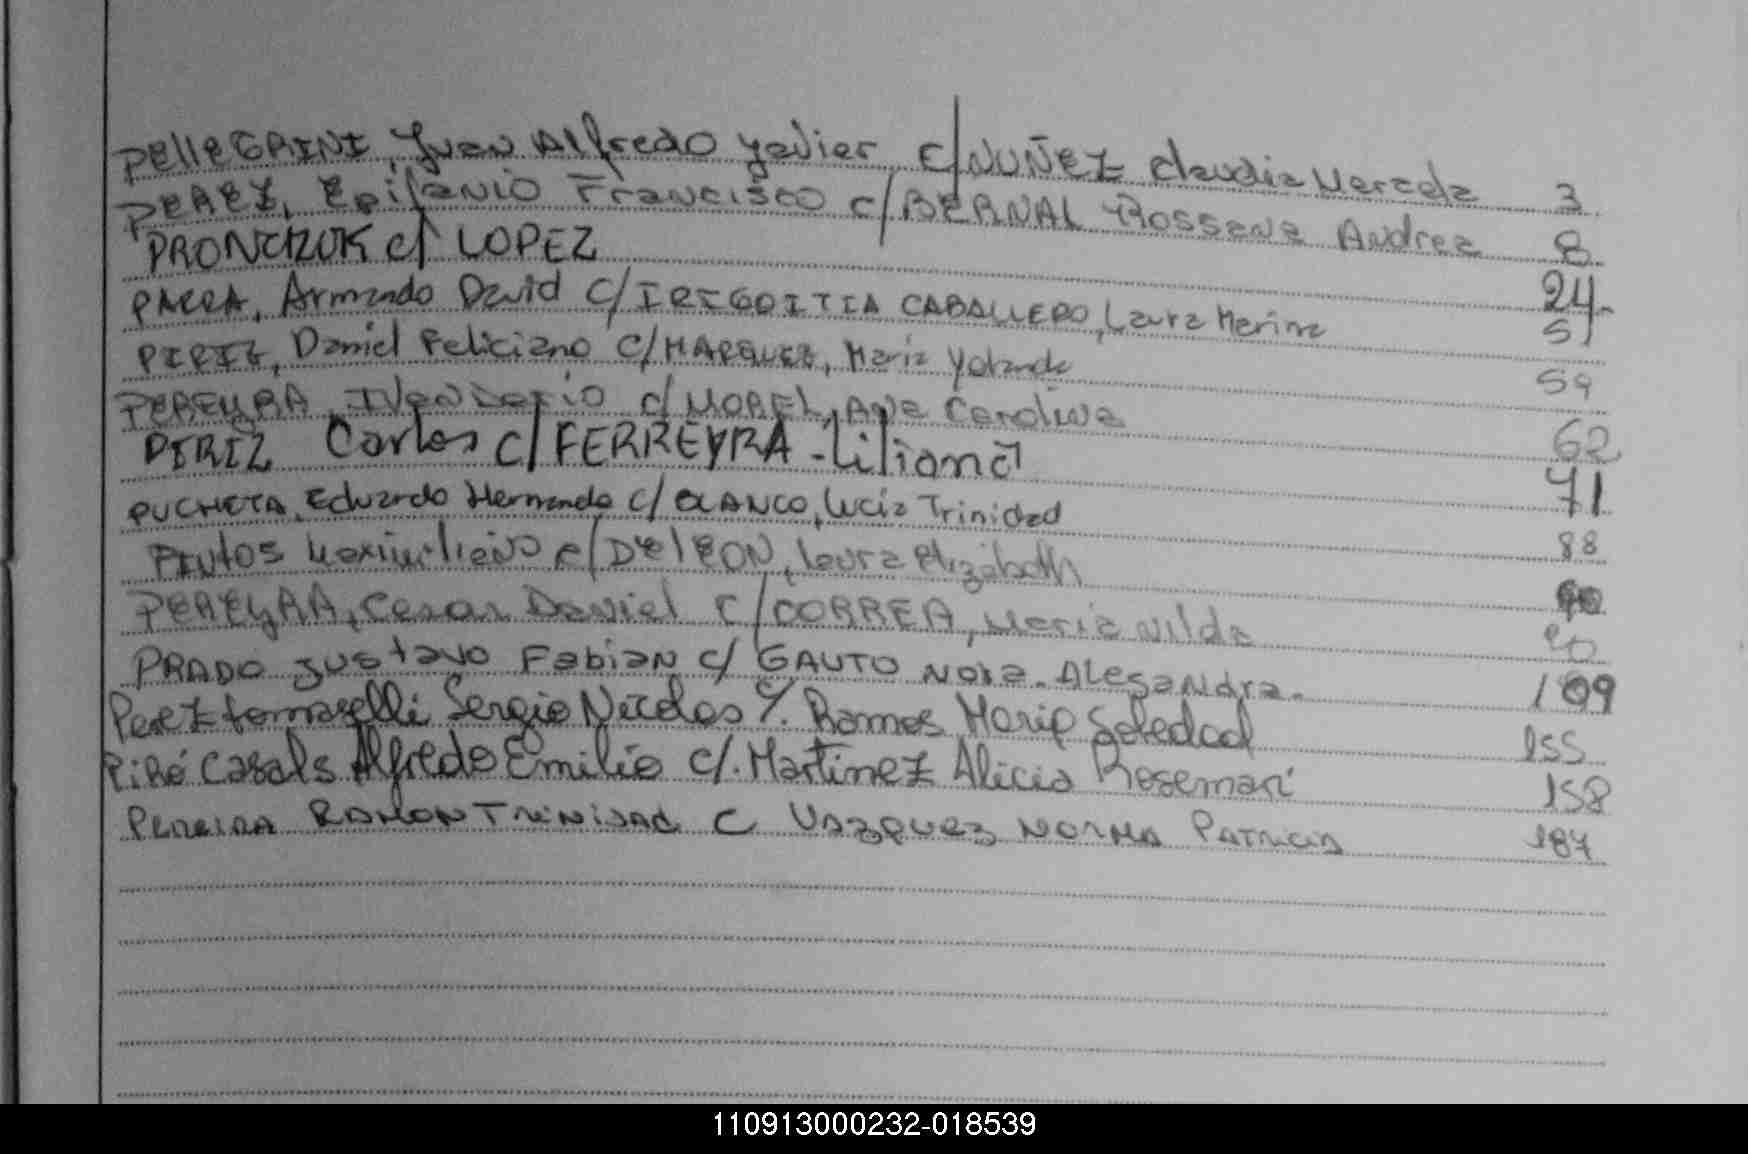 PELLEGRINI, Juan Alfredo Javier c/ NUÑEZ Claudia Marcela 3
PEREZ, Epifanio Francisco c/ BERNAL Rossana Andrea 8
PRONCZUK c/ LOPEZ 24
PARRA, Armando David c/ IRIGOITIA CABALLERO, Laura Marina 51
PIRIZ, Daniel Feliciano c/ MARQUEZ, Maria Yolanda 59
PEREYRA, Ivan Dario c/ MOREL, Ana Carolina 62
PIRIZ Carlos c/ FERREYRA - Liliana 71
PUCHETA, Eduardo Hernando c/ BLANCO, Lucia Trinidad 88
Maximiliano c/ De LEON, Laura Elizabeth
PEREYRA, Cesar Daniel c/ CORREA, Maria Nilda 90
PRADO Gustavo Fabian c/ GAUTO Nora. Alejandra. 109
Perez Tomaselli Sergio Nicolas c/. Ramos Maria Soledad 155
Piré Casals Alfredo Emilio c/. Martinez Alicia Rosemari 158
PEREIRA RAMON TRINIDAD C VAZQUEZ NORMA PATRICIA 187
110913000232-018539